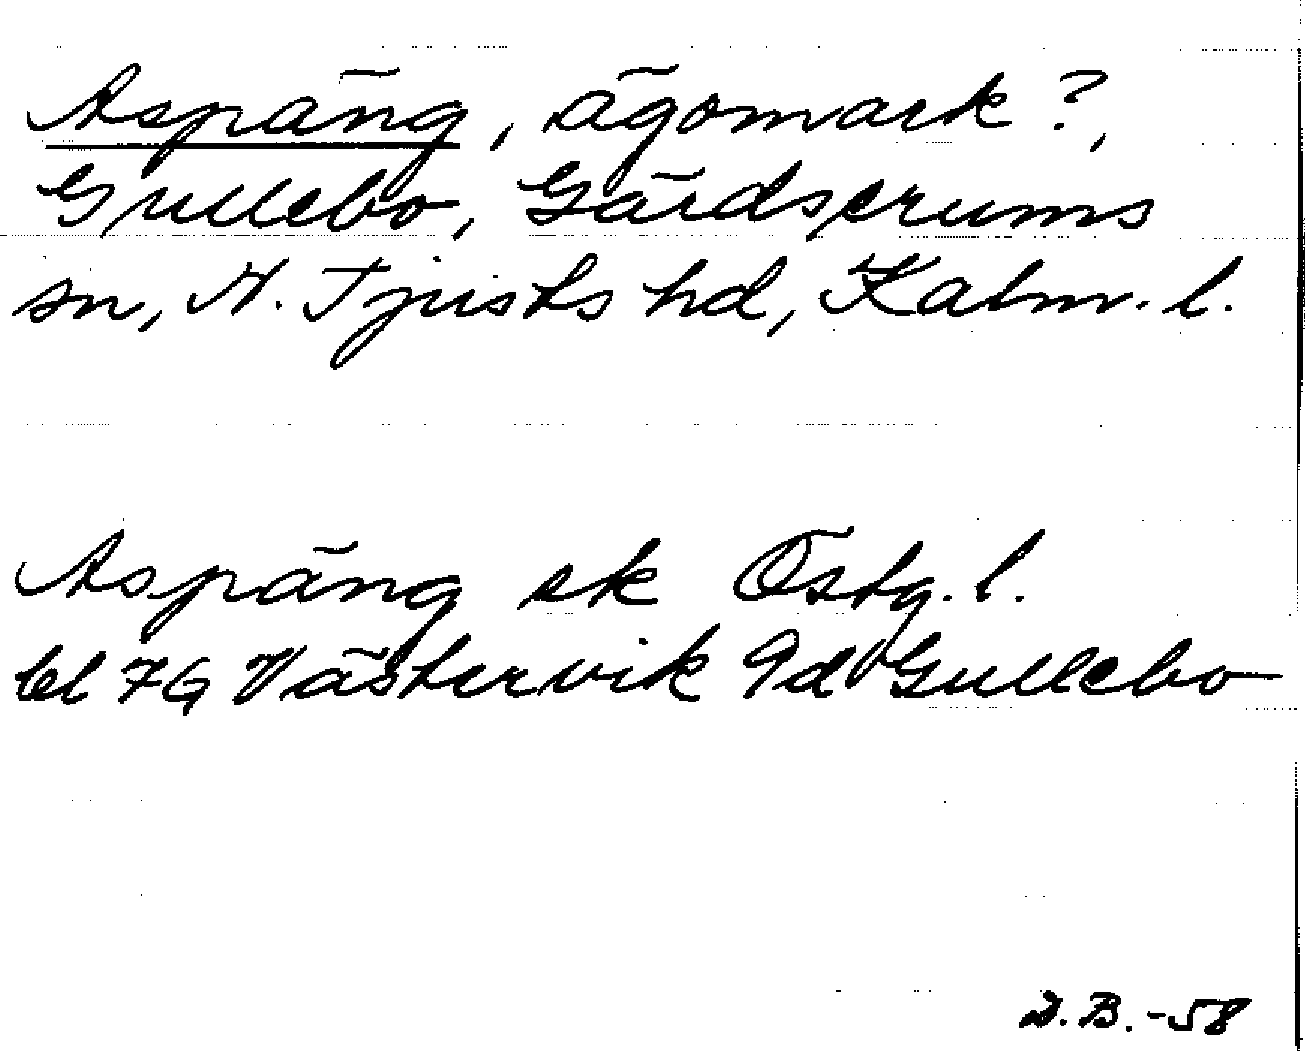 Aspäng, ägomark?,
Gullebo, Gärdserums
sn, N. Tjusts hd, Kalm. l.
Aspäng ek Östg. l.
bl 7G Västervik 9d Gullebo
D.B. -58